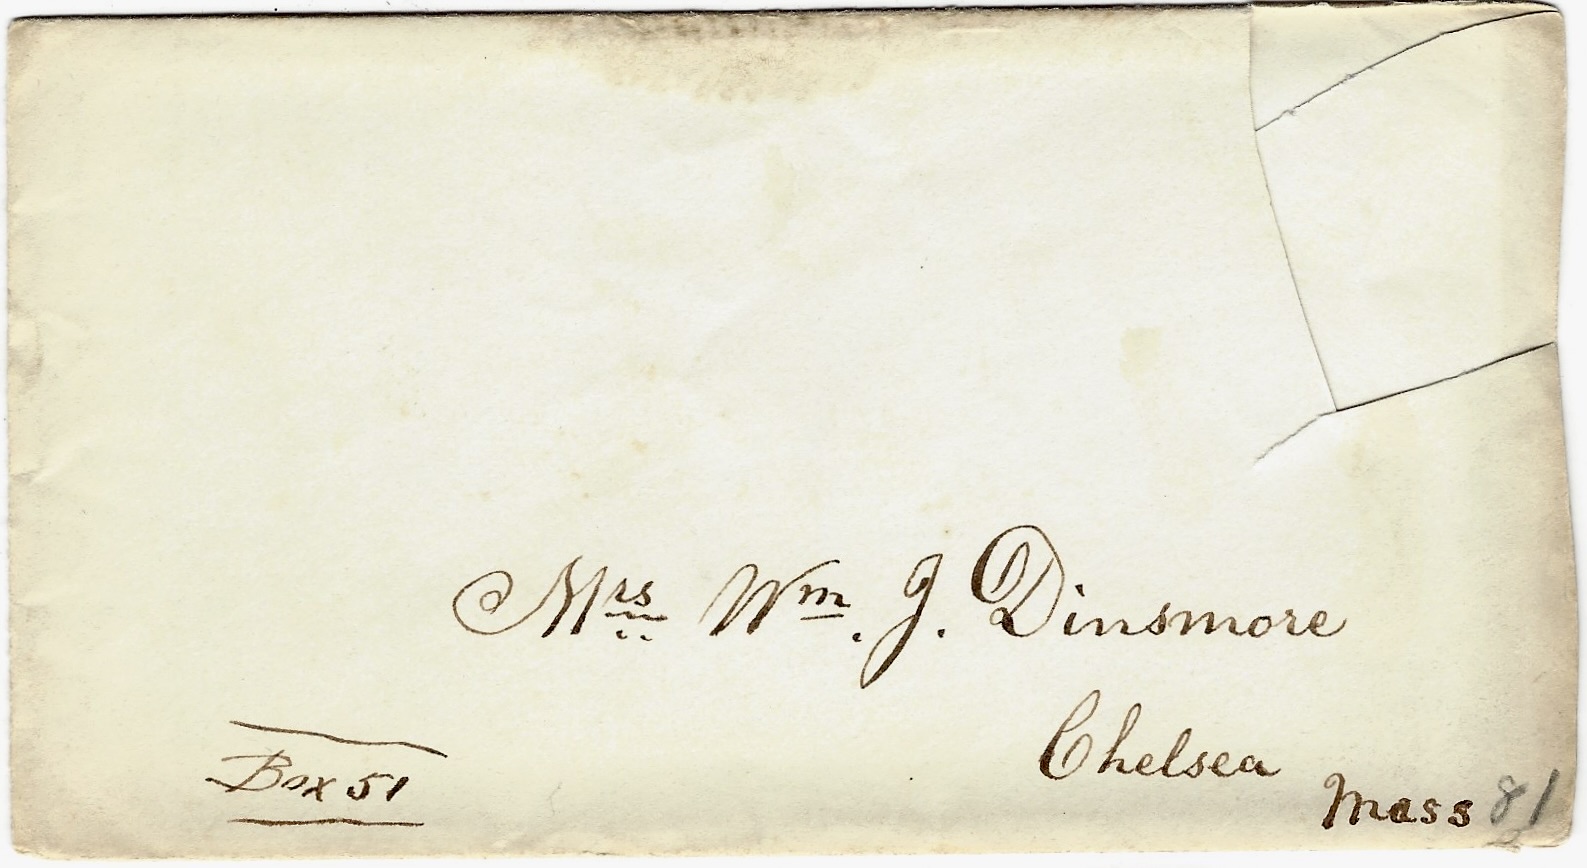 Mrs Wm. J. Dinsmore
Chelsea
Mass 81
Box 51